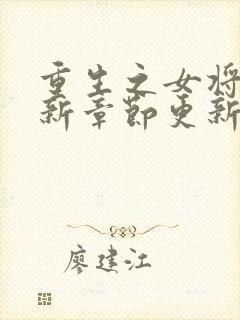 重生之女将
新章节更新
廖建江